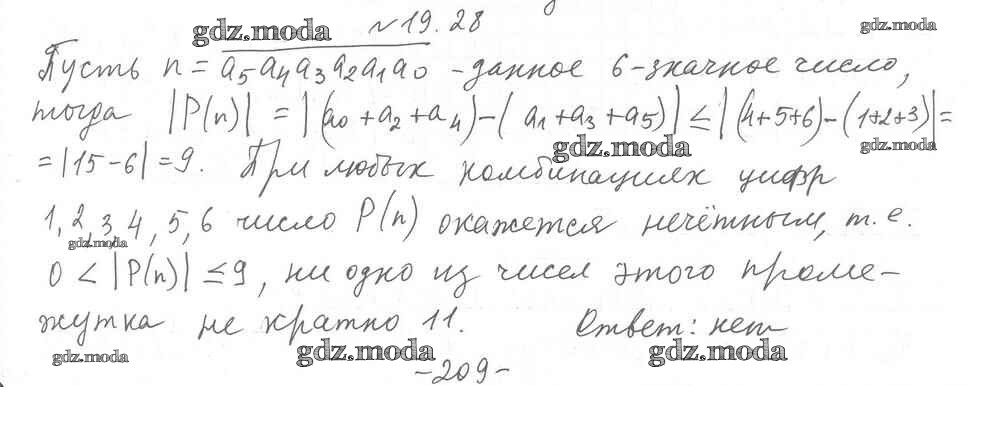 №19.28
gdz.moda
gdz.moda
Пусть n = a5a4a3a2a1a0 - данное 6-значное число,
тогда |P(n)| = |(a0+a2+a4)-(a1+a3+a5)| ≤ |(4+5+6)-(1+2+3)| =
gdz.moda
gdz.moda
= |15-6| = 9. При любых комбинациях цифр
1, 2, 3, 4, 5, 6 число P(n) окажется нечётным, т.е.
gdz.moda
0 < |P(n)| ≤ 9, ни одно из чисел этого проме-
жутка не кратно 11. Ответ: нет
gdz.moda
gdz.moda
gdz.moda
-209-